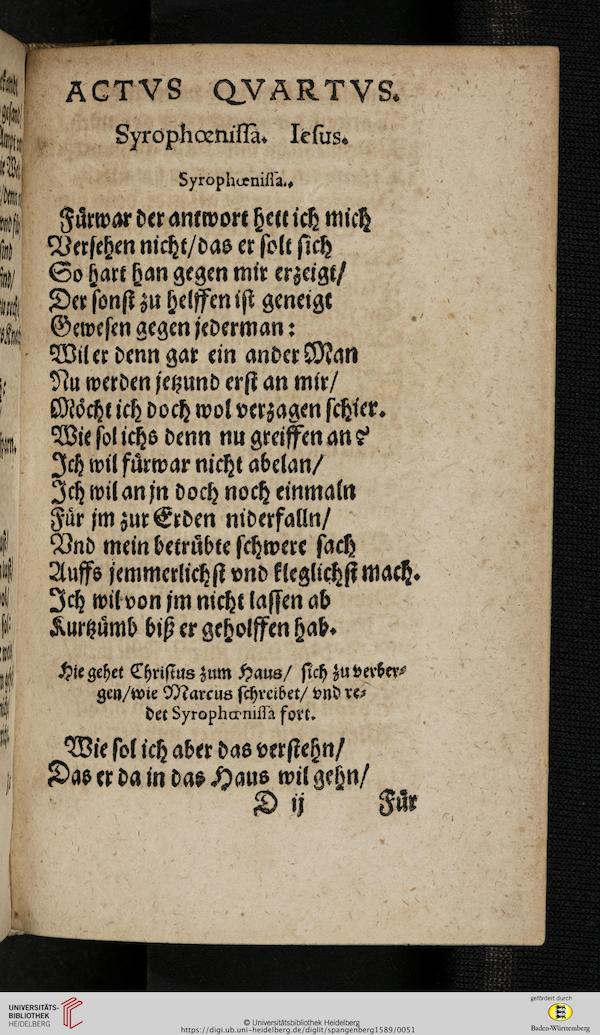 ACTVS QVARTVS.
Syrophœnissa. Iesus.
Syrophœnissa.
Fürwar der antwort hett ich mich
Versehen nicht/das er solt sich
So hart han gegen mir erzeigt/
Der sonst zu helffen ist geneigt
Gewesen gegen jederman:
Wil er denn gar ein ander Man
Nu werden jetzund erst an mir/
Möcht ich doch wol verzagen schier.
Wie sol ichs denn nu greiffen an?
Ich wil fürwar nicht abelan/
Ich wil an jn doch noch einmaln
Für jm zur Erden niderfalln/
Vnd mein betrübte schwere sach
Auffs jemmerlichst vnd kleglichst mach.
Ich wil von jm nicht lassen ab
Kurtzümb biß er geholffen hab.
Hie gehet Christus zum Haus/ sich zu verber-
gen/wie Marcus schreibet/ vnd re-
det Syrophœnissa fort.
Wie sol ich aber das verstehn/
Das er da in das Haus wil gehn/
D ij Für
UNIVERSITÄTS-
BIBLIOTHEK
HEIDELBERG
© Universitätsbibliothek Heidelberg
https://digi.ub.uni-heidelberg.de/diglit/spangenberg1589/0051
gefördert durch
Baden-Württemberg